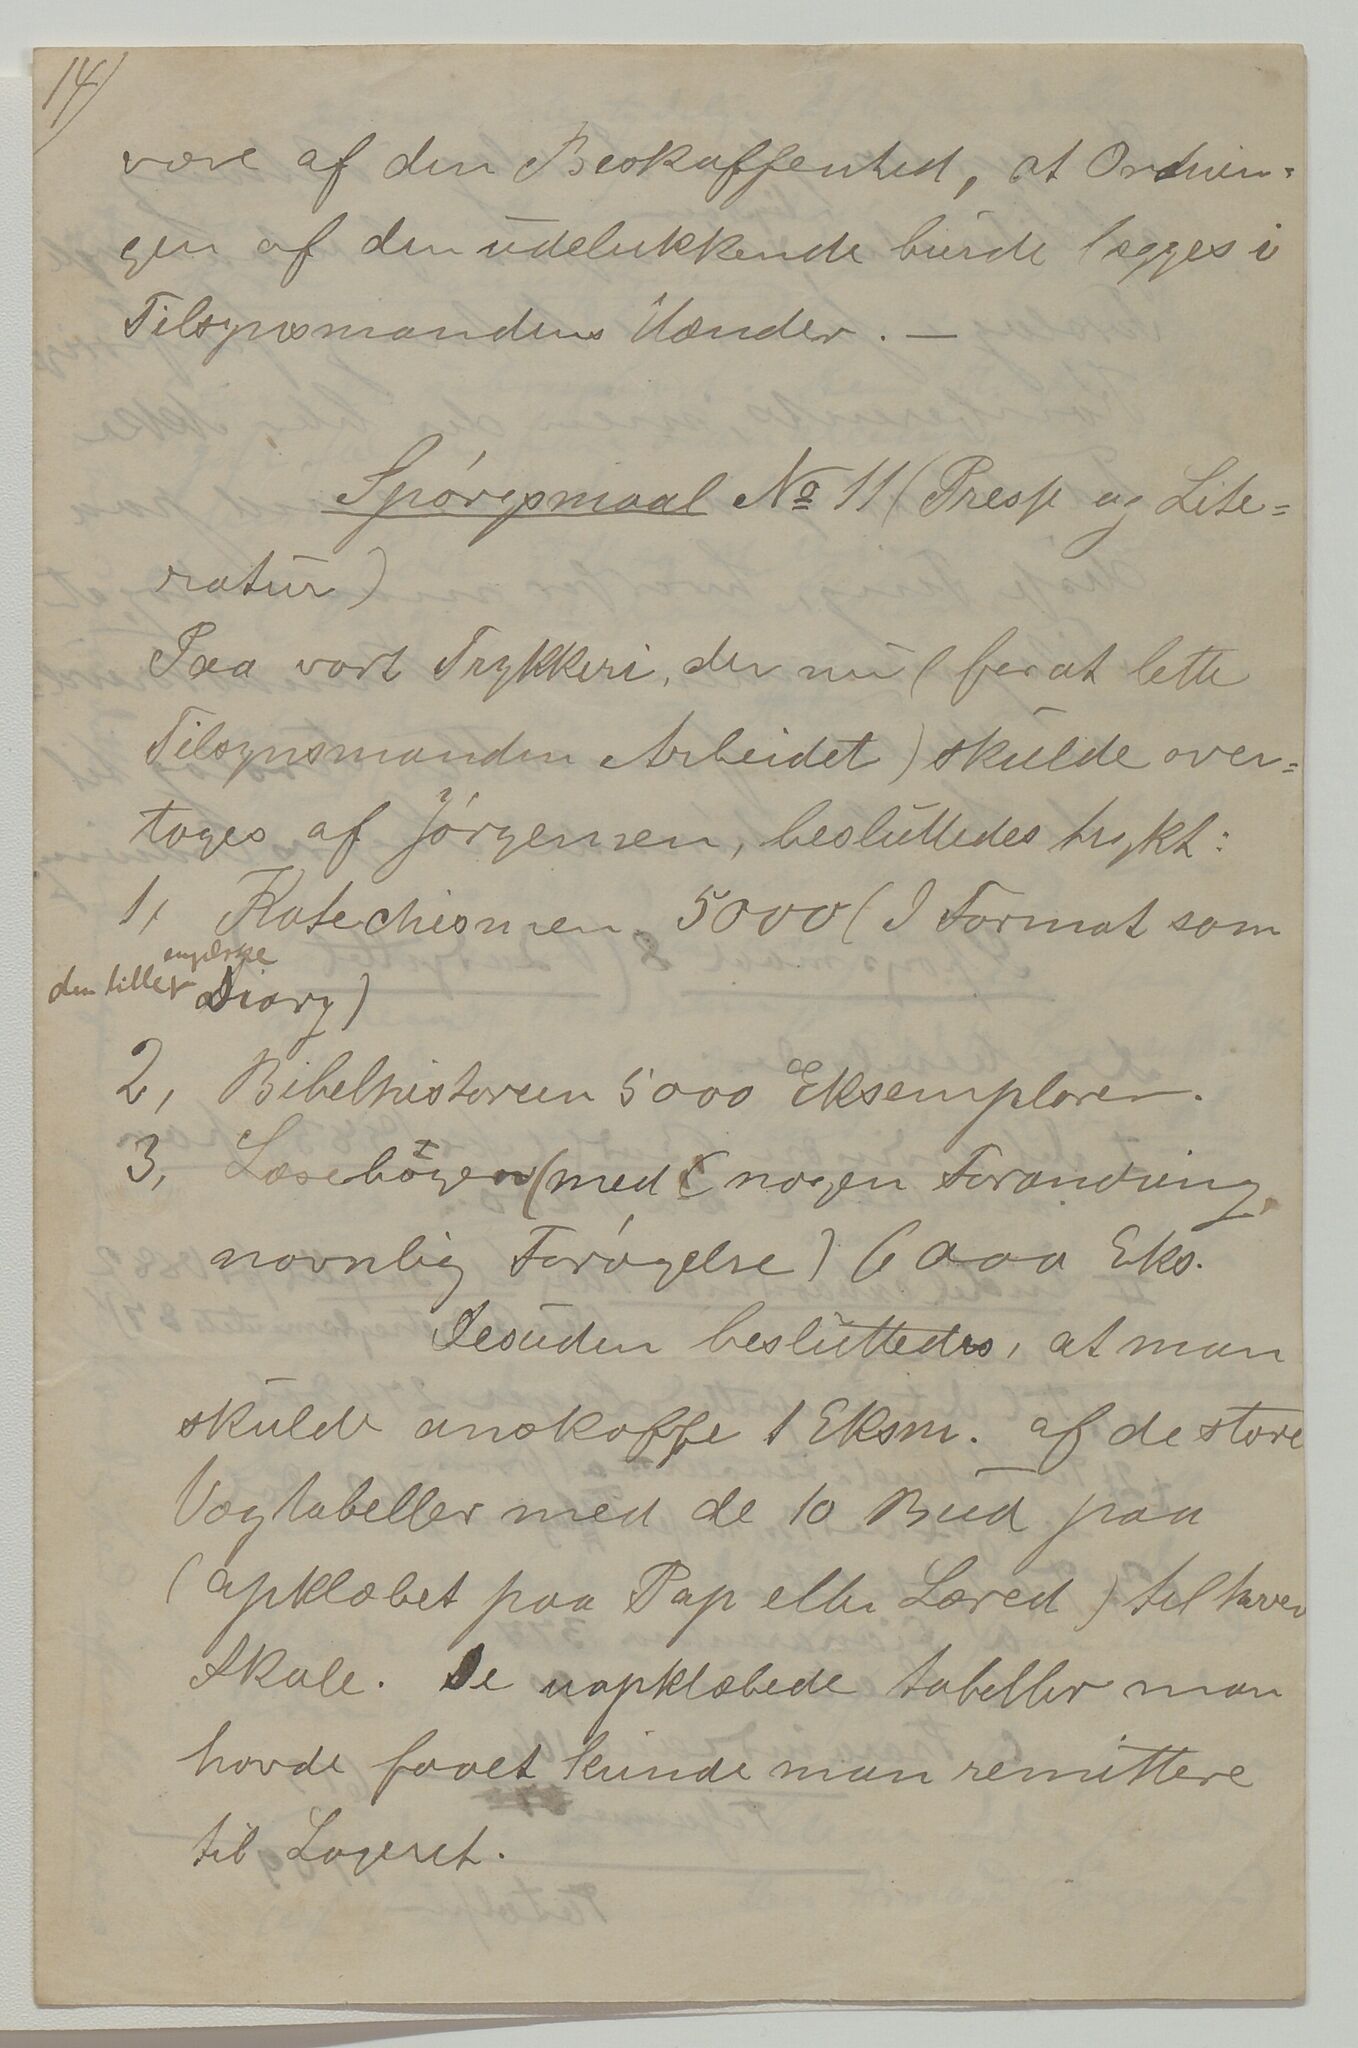 14/
være af den Beskaffenhed, at Ordnin-
gen af den udelukkende burde lægges i
Tilsynsmandens Hænder. —
Spørgsmaal No 11 (Presse og Lite=
ratur)
Paa vort Trykkeri, der nu (for at lette
Tilsynsmanden Arbeidet) skulde over=
tages af Jørgensen, besluttedes trykt:
1, Katechismen. 5000 (I Format som
den lille engelske Diary)
2, Bibelhistorien 5000 Eksemplarer.
3, Læsebogen (med nogen Forandring,
navnlig Forøgelse) 6000 Eks.
Desuden besluttedes, at man
skulde anskaffe 1 Eksm. af de store
Vægtabeller med de 10 Bud paa
(opklæbet paa Pap eller Lærred) til hver
Skole. De uopklæbede tabeller man
havde faaet kunde man remittere
til Lageret.